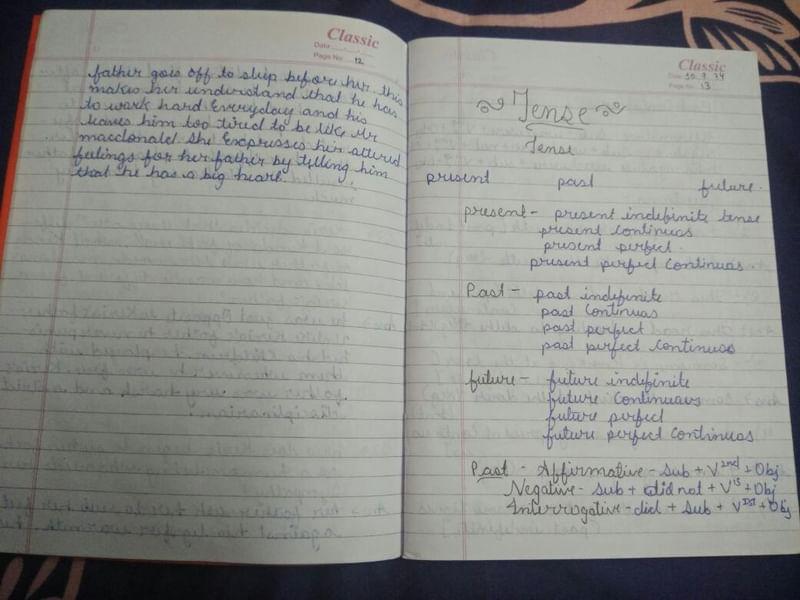 Classic
Date
Page No. 12
father goes off to sleep before her this
makes her understand that he has
to work hard everyday and his
leaves him too tired to be like Mr
macdonald. She expresses her altered
feelings for her father by telling him
that he has a big heart.
Classic
Date 10.7.24
Page No. 13
Tense
Tense
present past future.
present - present indefinite tense
present continuos
present perfect.
present perfect continuas.
Past - past indefinite
past continuos
past perfect
past perfect continuos
future - future indefinite
future continuavs
future perfect
future perfect continuas
Past - Affirmative - sub + V2nd + Obj
Negative - sub + did not + V1s + Obj
Interrogative - did + sub + V1st + Obj